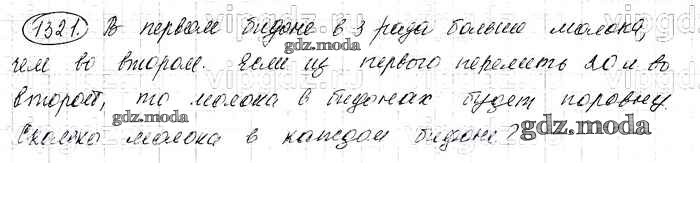 1321. В первом бидоне в 3 раза больше молока,
чем во втором. Если из первого перелить 20 л во
второй, то молока в бидонах будет поровну.
Сколько молока в каждом бидоне?
gdz.moda
gdz.moda
gdz.moda
gdz.moda